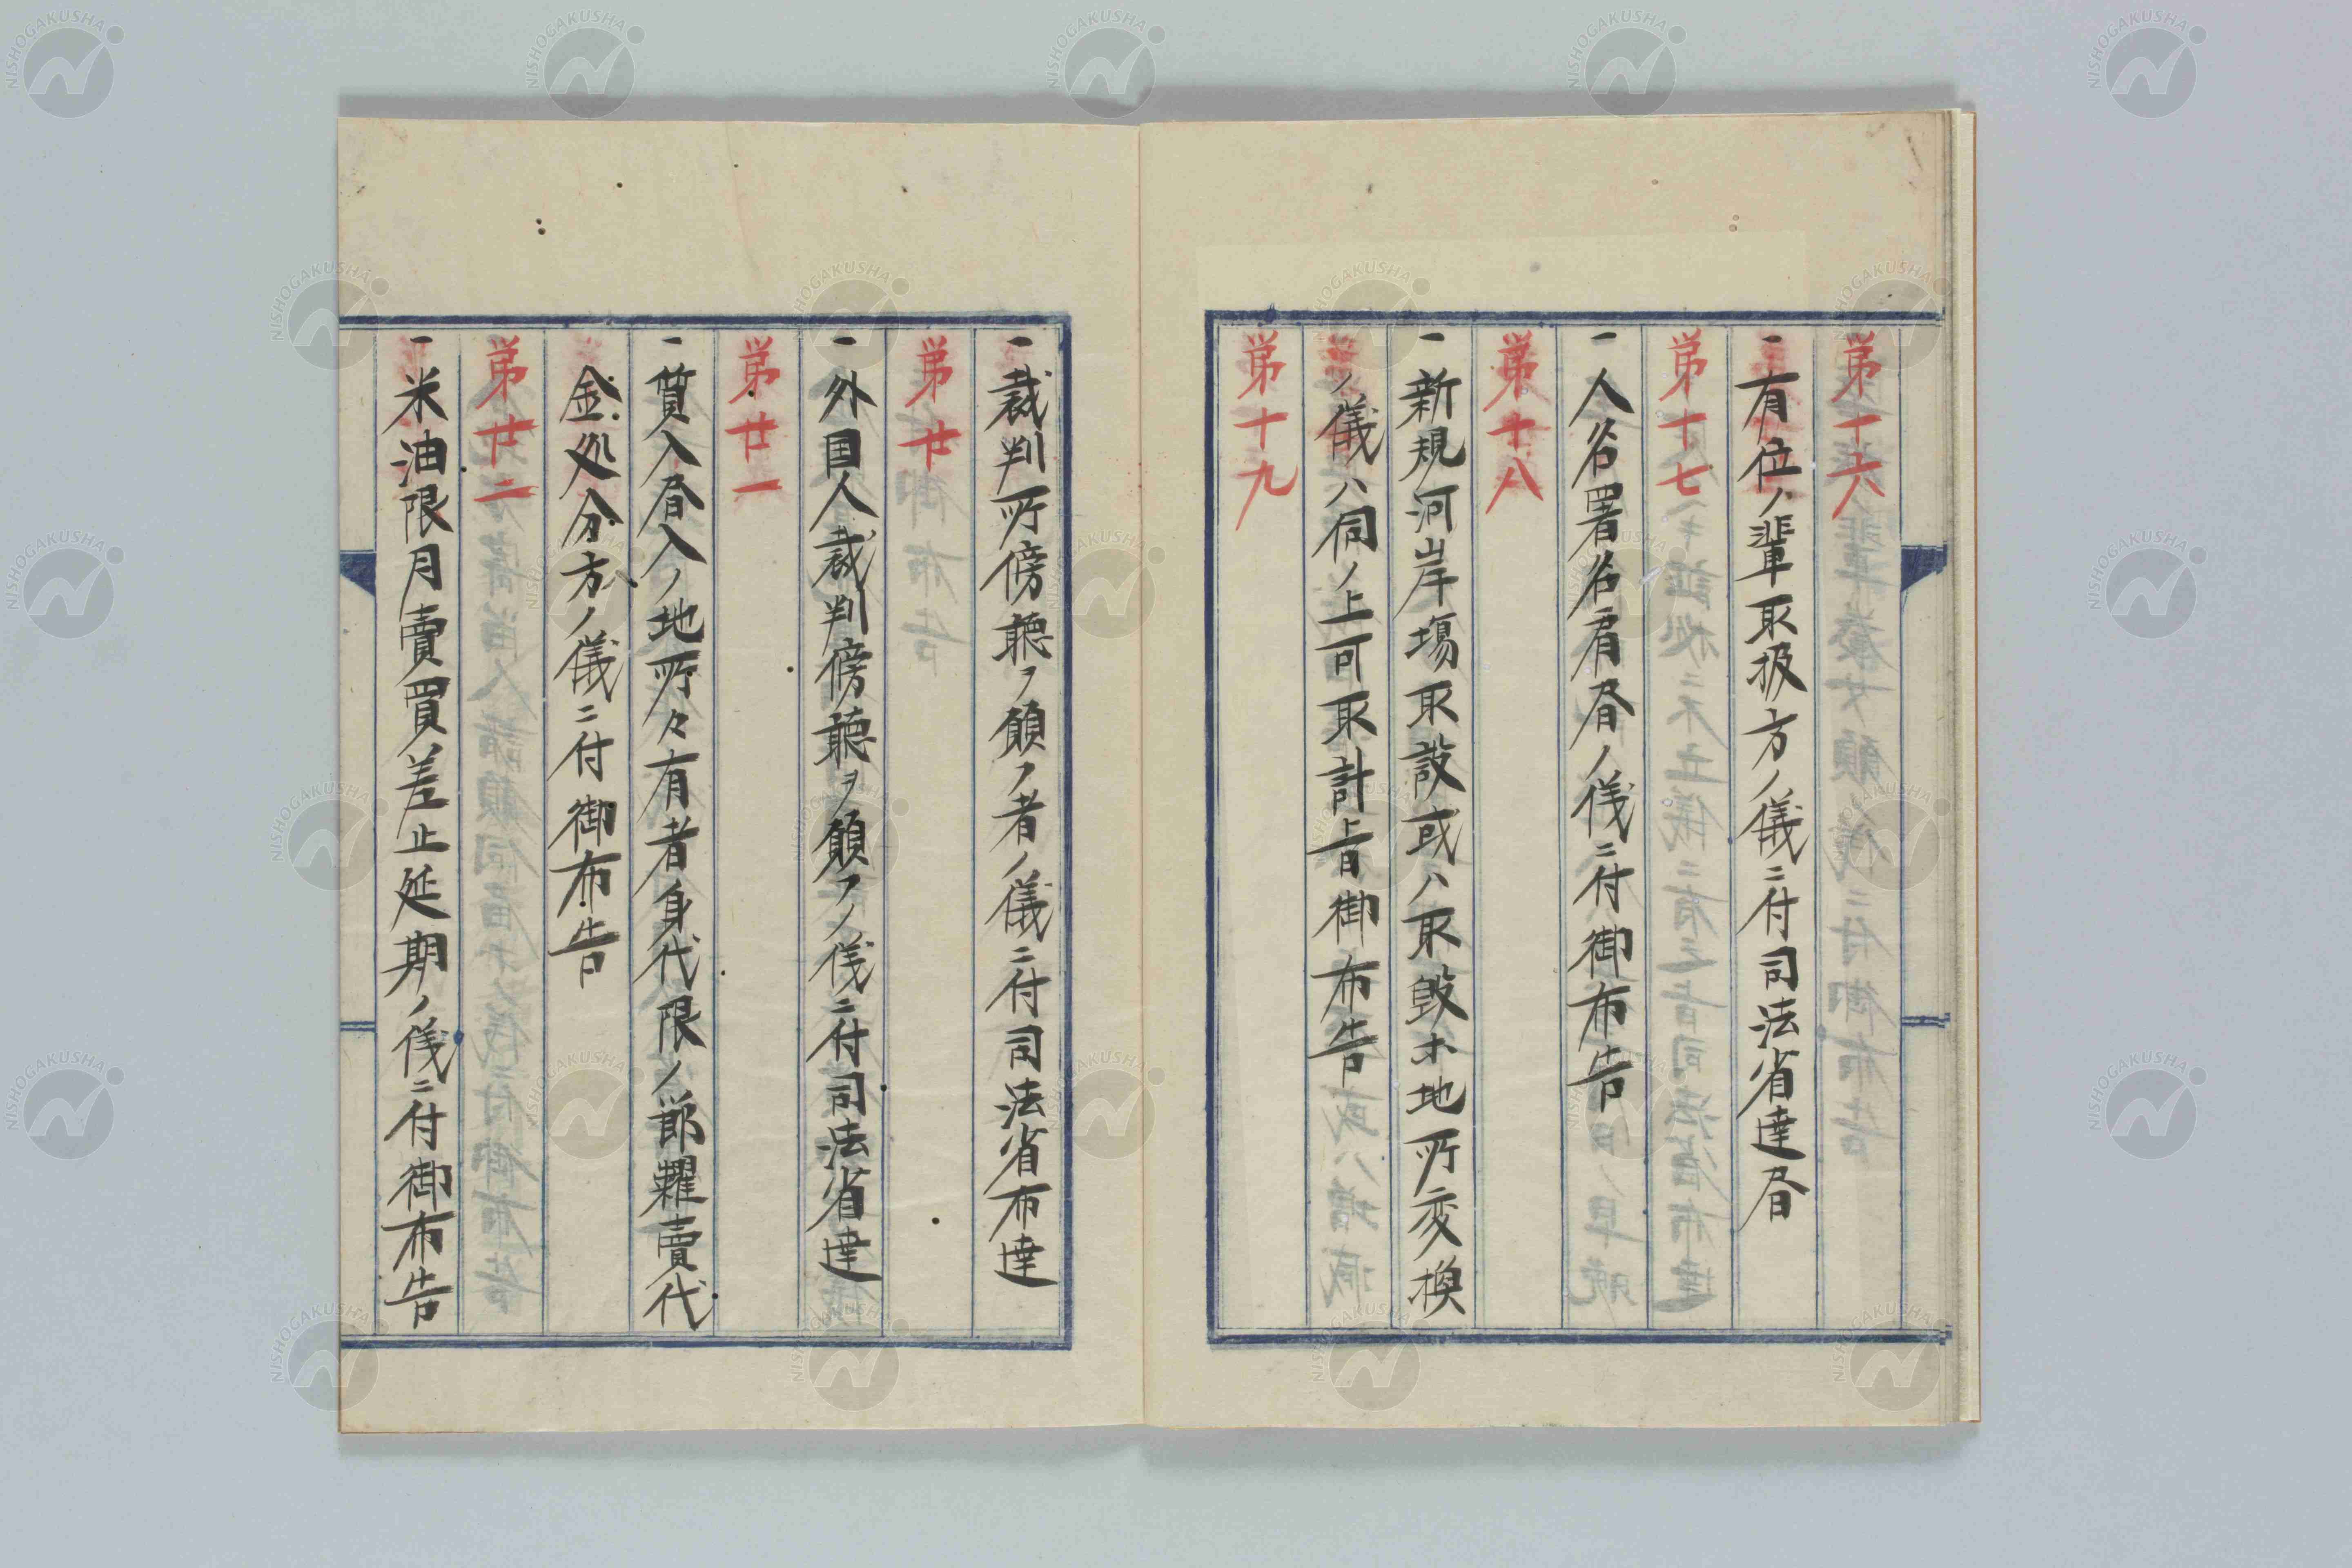 第十六
一有位ノ輩取扱方ノ儀ニ付司法省達書
第十七
一人名署名肩書ノ儀ニ付御布告
第十八
一新規河岸場取設或ハ取毀ホ地所変換
ノ儀ハ伺ノ上可取計旨御布告
第十九
一裁判所傍聴ヲ願フ者ノ儀ニ付司法省布達
第廿
一外国人裁判傍聴ヲ願フノ儀ニ付司法省達
第廿一
一質入書入ノ地所々有者身代限ノ節糶賣代
金処分方ノ儀ニ付御布告
第廿二
一米油限月賣買差止延期ノ儀ニ付御布告
NISHOGAKUSHA